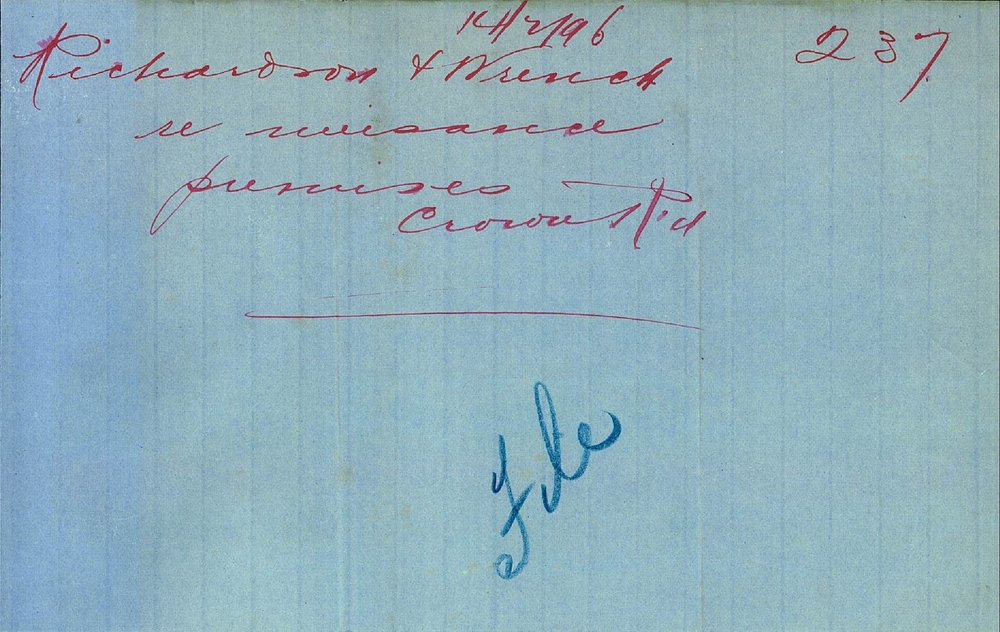 14/2/96
237
Richardson & Wrench
re nuisance
premises
Crown Rd
File